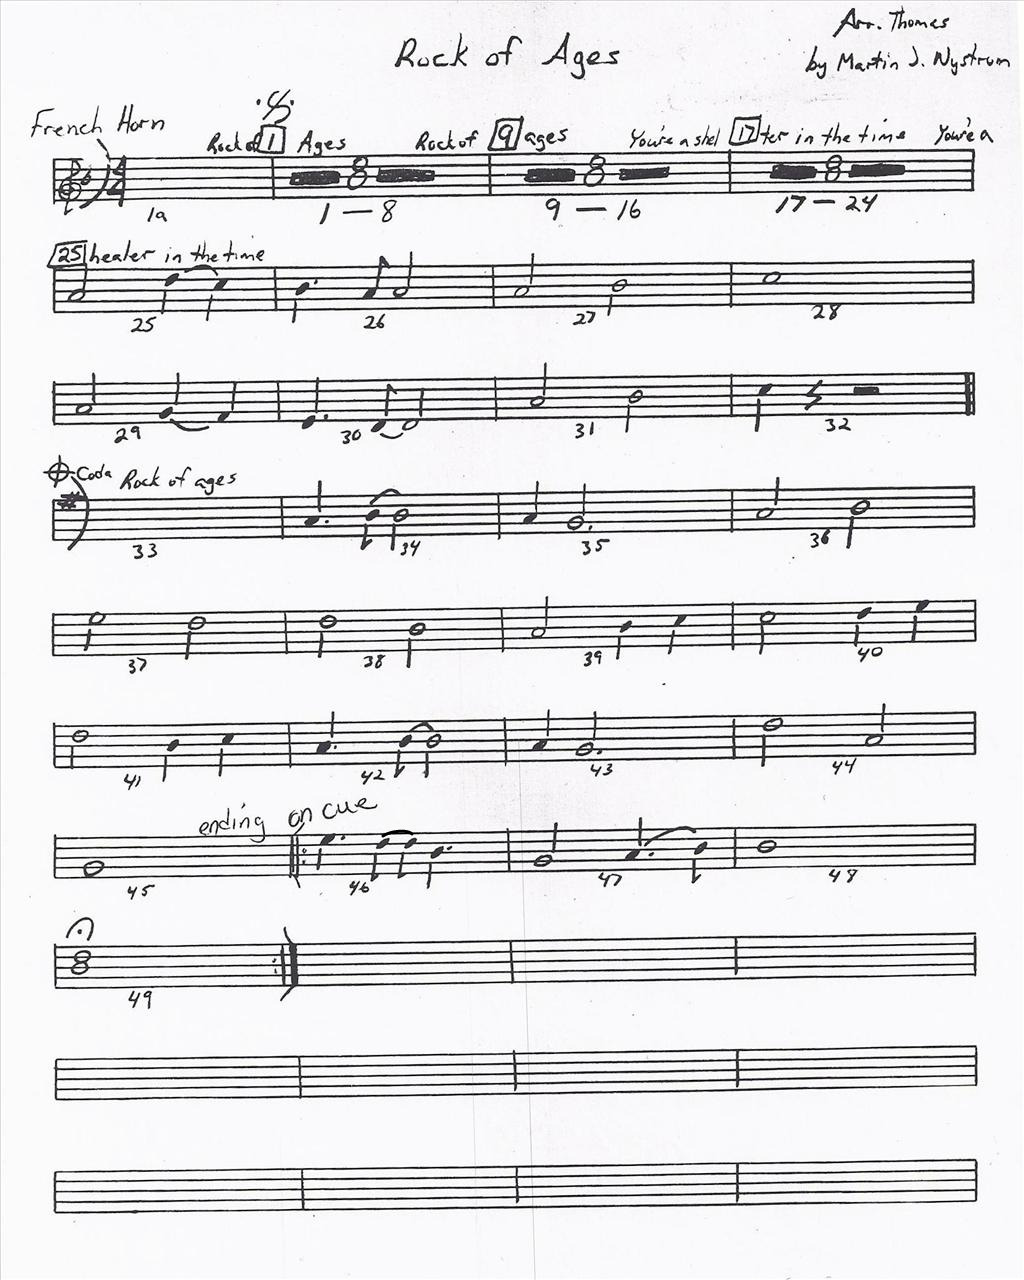 Arr. Thomas
Rock of Ages
by Martin J. Nystrom
French Horn
Rock of 1 Ages Rock of 9 ages You're a shel 17 ter in the time You're a
8 8 8
1a 1 — 8 9 — 16 17 — 24
25 healer in the time
25 26 27 28
29 30 31 32
Coda Rock of ages
33 34 35 36
37 38 39 40
41 42 43 44
ending on cue
45 46 47 48
49